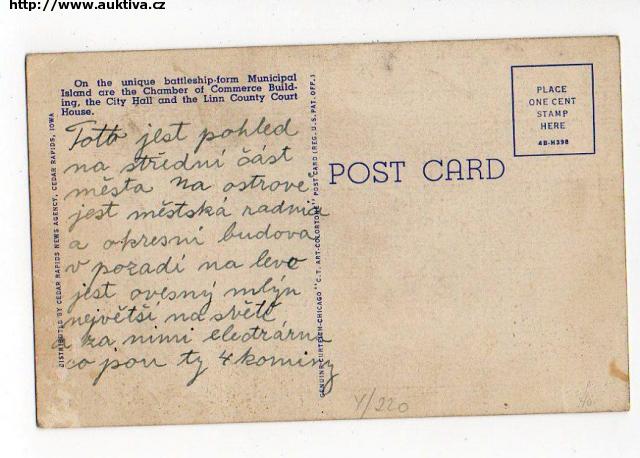 http://www.auktiva.cz
On the unique battleship-form Municipal
Island are the Chamber of Commerce Build-
ing, the City Hall and the Linn County Court
House.
Toto jest pohled
na střední část
města na ostrově
jest městská radnice
a okresní budova
v pozadí na levo
jest ovesný mlýn
největší na světě
a za nimi electrárna
co jsou ty 4 komíny
DISTRIBUTED BY CEDAR RAPIDS NEWS AGENCY, CEDAR RAPIDS, IOWA
GENUINE CURTEICH-CHICAGO "C.T. ART-COLORTONE" POST CARD (REG. U.S. PAT. OFF.)
POST CARD
PLACE
ONE CENT
STAMP
HERE
4B-H398
Y/220